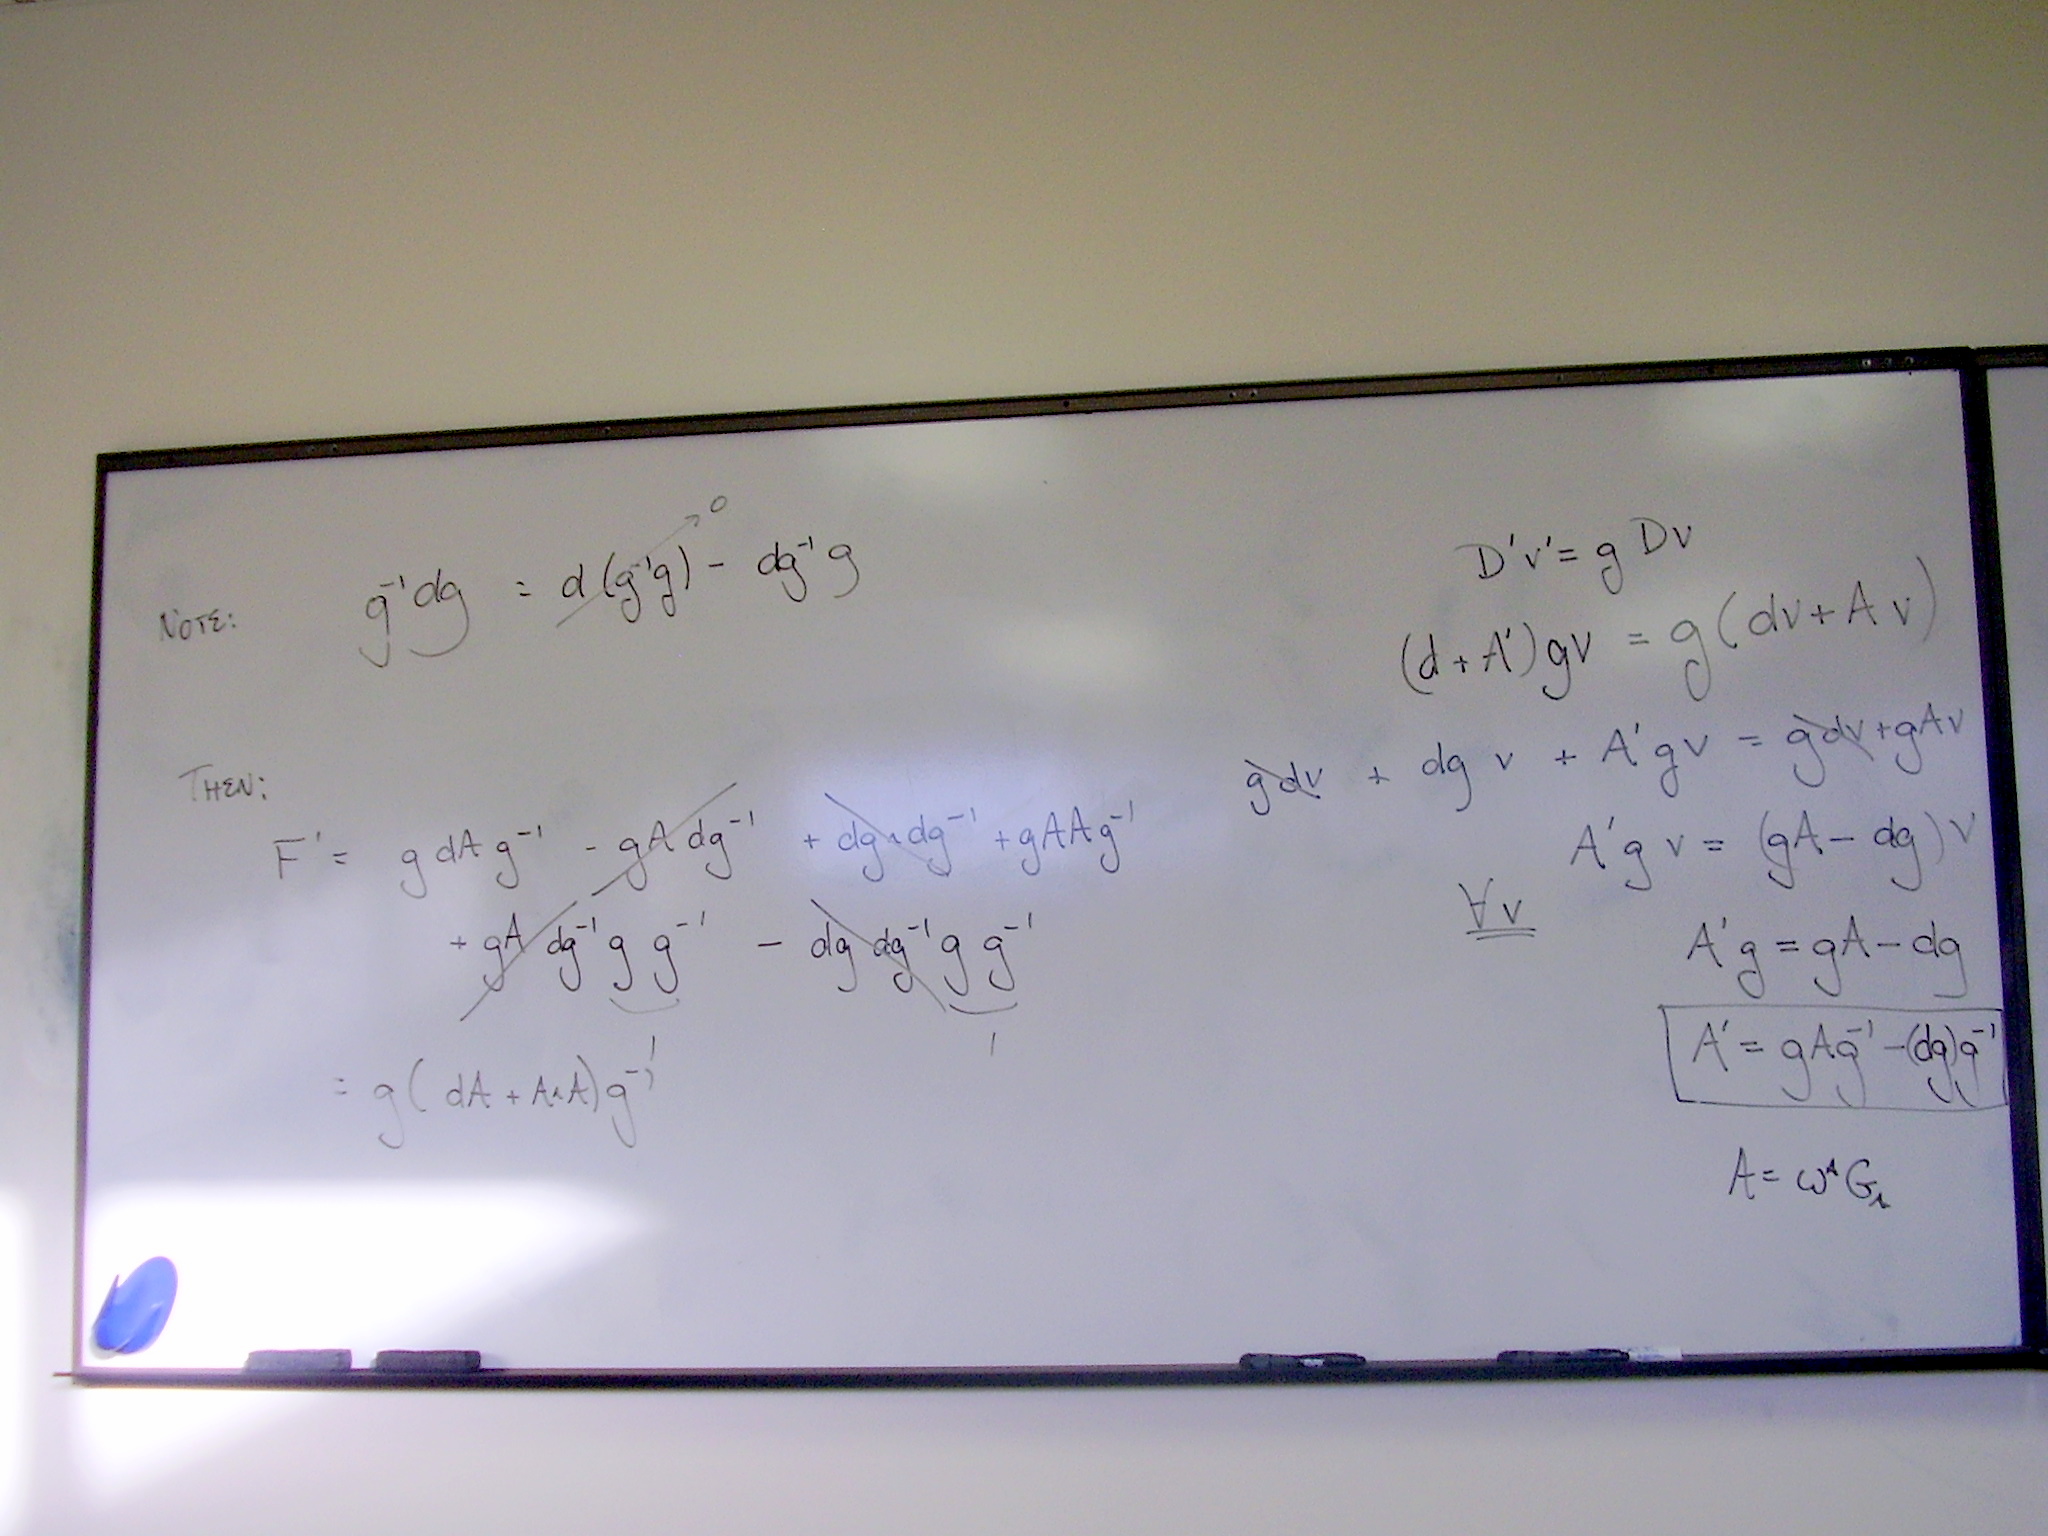 NOTE: g⁻¹dg = d(g⁻¹g) - dg⁻¹g
0
THEN:
F' = g dA g⁻¹ - gA dg⁻¹ + dg∧dg⁻¹ + gAAg⁻¹
+ gA dg⁻¹ g g⁻¹ - dg dg⁻¹ g g⁻¹
1 1
= g(dA + A∧A)g⁻¹
D'v' = g Dv
(d + A')gv = g(dv + Av)
gdv + dg v + A'gv = gdv + gAv
A'g v = (gA - dg)v
∀v
A'g = gA - dg
A' = gAg⁻¹ - (dg)g⁻¹
A = ωᴬG_A